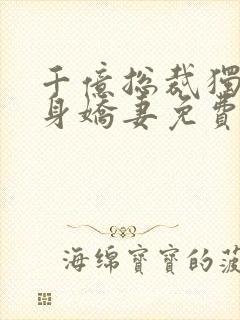 千億総裁獨
身嬌妻免費
海绵寶寶的菠